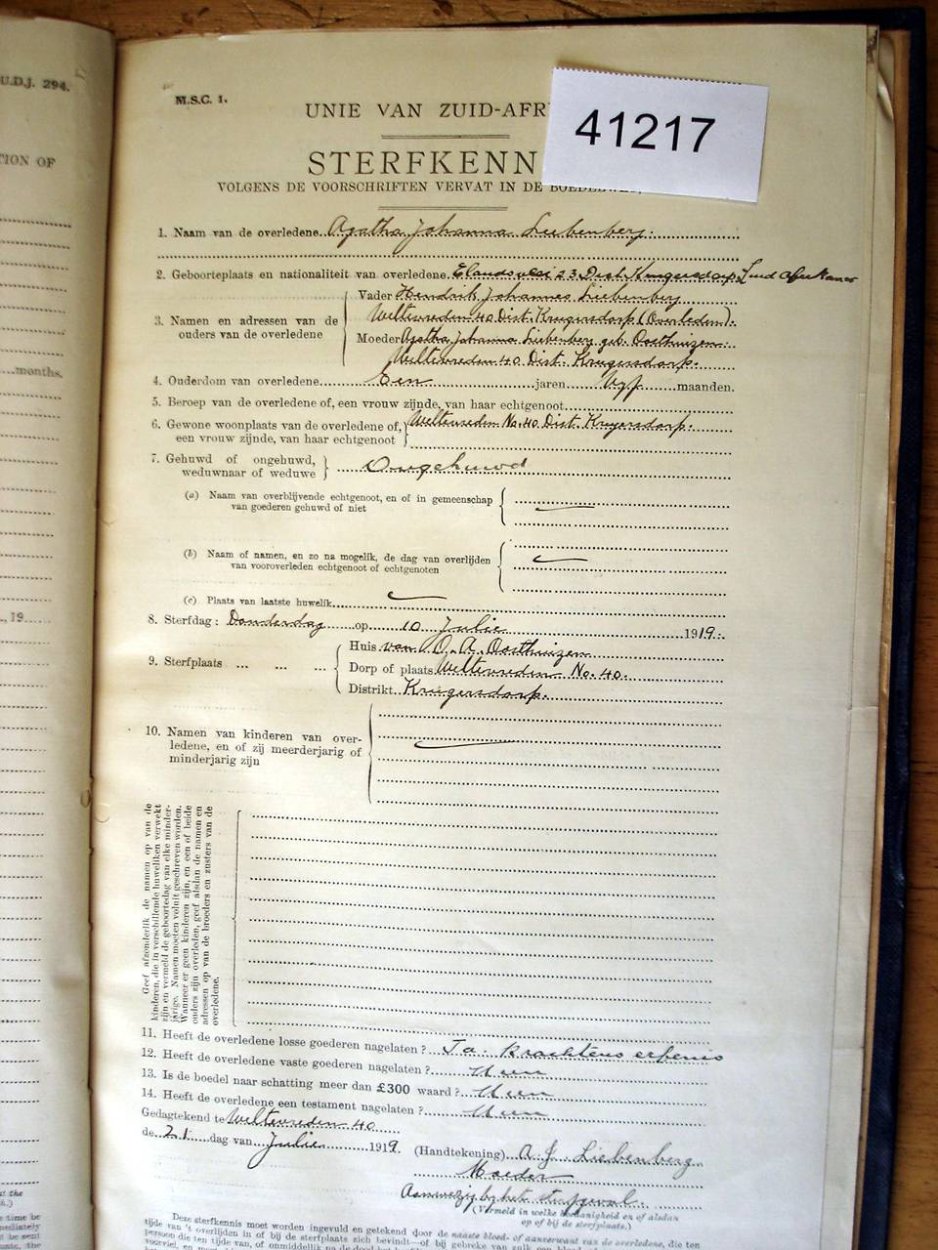 U.D.J. 294.
TION OF
months.
, 19
M.S.C. 1.
41217
UNIE VAN ZUID-AFR
STERFKENN
VOLGENS DE VOORSCHRIFTEN VERVAT IN DE
1. Naam van de overledene Agatha Johanna Liebenberg.
2. Geboorteplaats en nationaliteit van overledene. Elandsvlei 23 Dist. Krugersdorp, Zuid Afrikaner
3. Namen en adressen van de ouders van de overledene
Vader Hendrik Johannes Liebenberg
Weltevreden 40 Dist. Krugersdorp (Overleden).
Moeder Agatha Johanna Liebenberg geb. Oosthuizen.
Weltevreden 40 Dist. Krugersdorp.
4. Ouderdom van overledene Een jaren Vyf maanden.
5. Beroep van de overledene of, een vrouw zijnde, van haar echtgenoot
6. Gewone woonplaats van de overledene of, een vrouw zijnde, van haar echtgenoot
Weltevreden No. 40. Dist. Krugersdorp.
7. Gehuwd of ongehuwd, weduwnaar of weduwe
Ongehuwd
(a) Naam van overblijvende echtgenoot, en of in gemeenschap
van goederen gehuwd of niet
(b) Naam of namen, en zo na mogelik, de dag van overlijden
van vooroverleden echtgenoot of echtgenoten
(c) Plaats van laatste huwelik
8. Sterfdag: Donderdag op 10 Julie 1919.
9. Sterfplaats ... ... ...
Huis van O. A. Oosthuizen
Dorp of plaats Weltevreden No. 40.
Distrikt Krugersdorp.
10. Namen van kinderen van over-
ledene, en of zij meerderjarig of
minderjarig zijn
Geef afzonderlik de namen op van de
kinderen, die in verschillende huweliken verwekt
zijn en vermeld de geboortedag van elke minder-
jarige. Namen moeten voluit geschreven worden.
Wanneer er geen kinderen zijn, en een of beide
ouders zijn overleden, geef alsdan de namen en
adressen op van de broeders en zusters van de
overledene.
11. Heeft de overledene losse goederen nagelaten? Ja. Krachtens erfenis
12. Heeft de overledene vaste goederen nagelaten? Neen
13. Is de boedel naar schatting meer dan £300 waard? Neen
14. Heeft de overledene een testament nagelaten? Neen
Gedagtekend te Weltevreden 40
de 21 dag van Julie 1919.
(Handtekening) A. J. Liebenberg
Moeder
Aanwezig by het sterfgeval.
(Vermeld in welke hoedanigheid en of alsdan
op of bij de sterfplaats.)
Deze sterfkennis moet worden ingevuld en getekend door de naaste bloed- of aanverwant van de overledene, die ten
tijde van 't overlijden in of bij de sterfplaats zich bevindt—of bij gebreke van